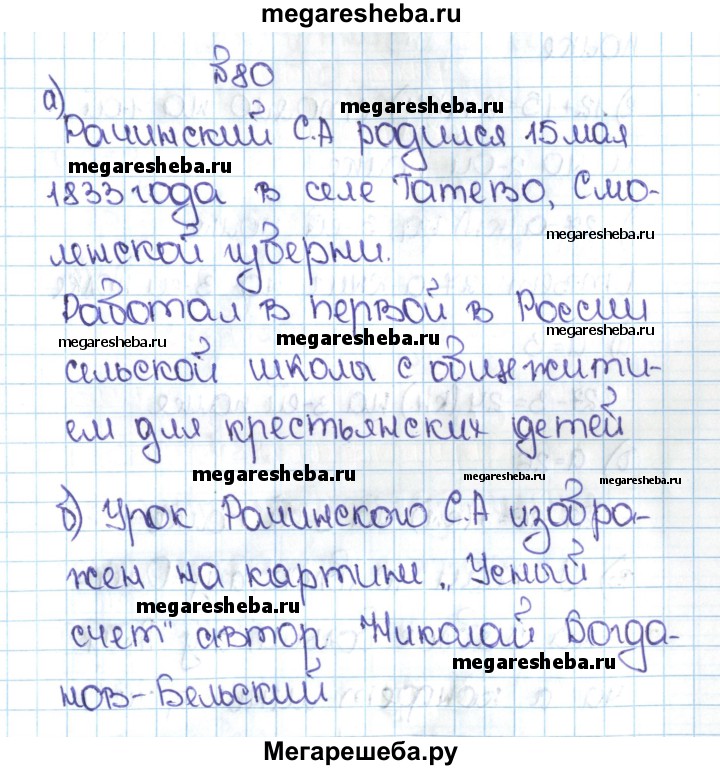 megaresheba.ru
№80
а)
megaresheba.ru
Рачинский С.А родился 15 мая
megaresheba.ru
1833 года в селе Татево, Смо-
megaresheba.ru
ленской губерни.
Работал в первой в России
megaresheba.ru megaresheba.ru megaresheba.ru
сельской школы с общежити-
ем для крестьянских детей
megaresheba.ru megaresheba.ru
б) Урок Рачинского С.А изобра-
жен на картини „Усный
megaresheba.ru
счет" автор Николай Богда-
megaresheba.ru
нов-Бельский
Мегарешеба.ру